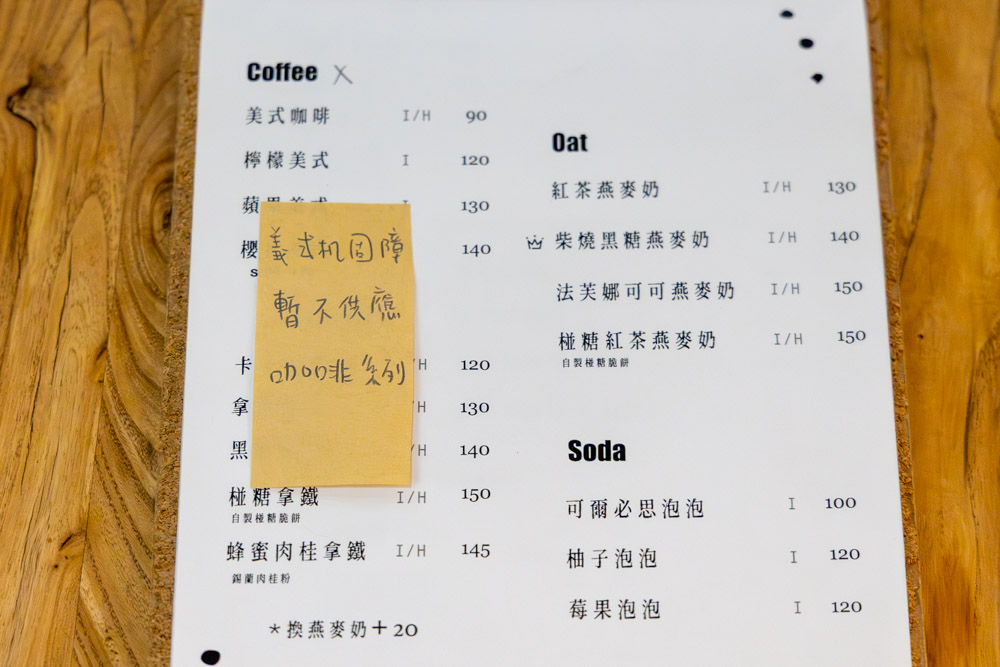 Coffee X
美式咖啡 I/H 90
檸檬美式 I 120
蘋果美式 130
櫻 140
s
卡 /H 120
拿 /H 130
黑 /H 140
椪糖拿鐵 I/H 150
自製椪糖脆餅
蜂蜜肉桂拿鐵 I/H 145
錫蘭肉桂粉
*換燕麥奶+20
義式机固障
暫不供應
咖啡系列
Oat
紅茶燕麥奶 I/H 130
柴燒黑糖燕麥奶 I/H 140
法芙娜可可燕麥奶 I/H 150
椪糖紅茶燕麥奶 I/H 150
自製椪糖脆餅
Soda
可爾必思泡泡 I 100
柚子泡泡 I 120
莓果泡泡 I 120